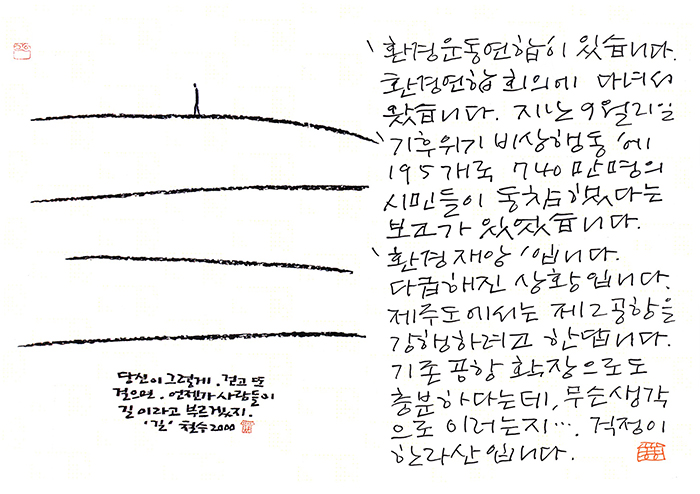 당신이 그렇게. 걷고 또
걸으면. 언젠가 사람들이
길이라고 부르겠지.
'길' 철수 2000
'환경운동연합'이 있습니다.
환경연합 회의에 다녀서
왔습니다. 지난 9월 21일
'기후위기 비상행동'에
195개국 740만명의
시민들이 동참했다는
보고가 있었습니다.
'환경재앙'입니다.
다급해진 상황입니다.
제주도에서는 제2공항을
강행하려고 한답니다.
기존 공항 확장으로도
충분하다는데, 무슨 생각
으로 이러는지···. 걱정이
한라산입니다.